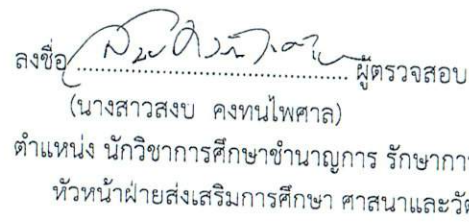 ลงชื่อ ........................................ ผู้ตรวจสอบ
(นางสาวสงบ คงทนไพศาล)
ตำแหน่ง นักวิชาการศึกษาชำนาญการ รักษากา
หัวหน้าฝ่ายส่งเสริมการศึกษา ศาสนาและวั